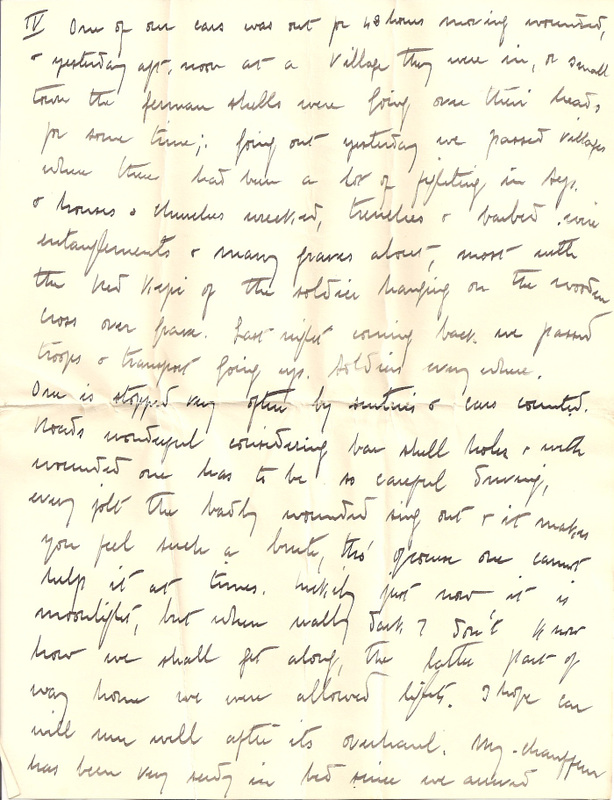 IV One of our cars was out for 48 hours moving wounded,
& yesterday aft. noon at a village they were in, or small
town the German shells were going over their heads
for some time; going out yesterday we passed villages
where there had been a lot of fighting in Sep.
& houses & churches wrecked, trenches & barbed wire
entanglements & many graves about, most with
the Red Kepi of the soldier hanging on the wooden
cross over grave. Last night coming back we passed
troops & transport going up. Soldiers every where.
One is stopped very often by sentries & cars counted.
Roads wonderful considering bar shell holes & with
wounded one has to be so careful driving,
every jolt the badly wounded sing out & it makes
you feel such a brute, tho' of course one cannot
help it at times. Luckily just now it is
moonlight, but when really dark I don't know
how we shall get along, the latter part of
way home we were allowed lights. I hope car
will run well after its overhaul. My chauffeur
has been very seedy in bed since we arrived